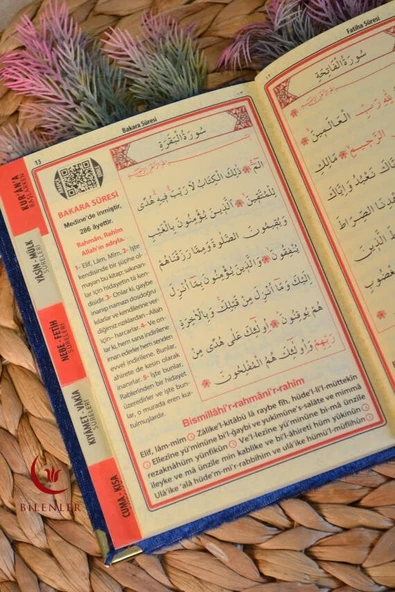 13
Bakara Sûresi
سُورَةُ الْبَقَرَةِ
BAKARA SÛRESİ
Medine'de inmiştir.
286 âyettir.
Rahmân, Rahîm
Allah'ın adıyla.
1- Elif, Lâm, Mîm. 2- İşte
kendisinde bir şüphe ol-
mayan bu kitap sakınan-
lar için hidayettir (a ken-
disidir. 3- Onlar ki, gaybe
inanıp namazı dosdoğru
kılarlar ve kendilerine ver-
diğimiz rızıklardan - Allah
için- harcarlar. 4- Ve on-
lar ki, hem sana indirilene
inanırlar hem senden
evvel indirilene. Bunlar,
ahirete de kesin olarak
inanırlar. 5- İşte bunlar,
Rablerinden bir hidayet
üzeredirler ve işte bun-
lar, o murada eren kur-
tulmuşlardır.
الٓمٓ ذٰلِكَ الْكِتَابُ لَا رَيْبَ فِيهِ هُدًى
لِلْمُتَّقِينَ الَّذِينَ يُؤْمِنُونَ بِالْغَيْبِ
وَيُقِيمُونَ الصَّلٰوةَ وَمِمَّا رَزَقْنَاهُمْ
يُنْفِقُونَ وَالَّذِينَ يُؤْمِنُونَ بِمَا أُنْزِلَ
إِلَيْكَ وَمَا أُنْزِلَ مِنْ قَبْلِكَ وَبِالْآخِرَةِ
هُمْ يُوقِنُونَ أُولٰئِكَ عَلٰى هُدًى مِنْ
رَبِّهِمْ وَأُولٰئِكَ هُمُ الْمُفْلِحُونَ
Bismillâhi'r-rahmâni'r-rahîm
Elif, lâm-mîm Zâlike'l-kitâbü lâ raybe fîh, hüde'l-li'l-müttekîn
Ellezîne yü'minûne bi'l-ğaybi ve yukîmûne's-salâte ve mimmâ
rezaknâhüm yünfikûn Ve'l-lezîne yü'minûne bi-mâ ünzile
ileyke ve mâ ünzile min kablike ve bi'l-âhireti hüm yûkinûn
Ülâ'ike'alâ hüde'm-mi'r-rabbihim ve ülâ'ike hümü'l-müflihûn
Fatiha Sûresi
سُورَةُ الْفَاتِحَةِ
رَبِّ الْعَالَمِينَ
الرَّحِيمِ مَالِكِ
نَعْبُدُ وَإِيَّاكَ
الصِّرَاطَ
الَّذِينَ
KUR'AN'A
YASİN - MÜLK
NEBE - FETİH
KIYAMET - VAKIA
CUMA - KISA
BİLENLER